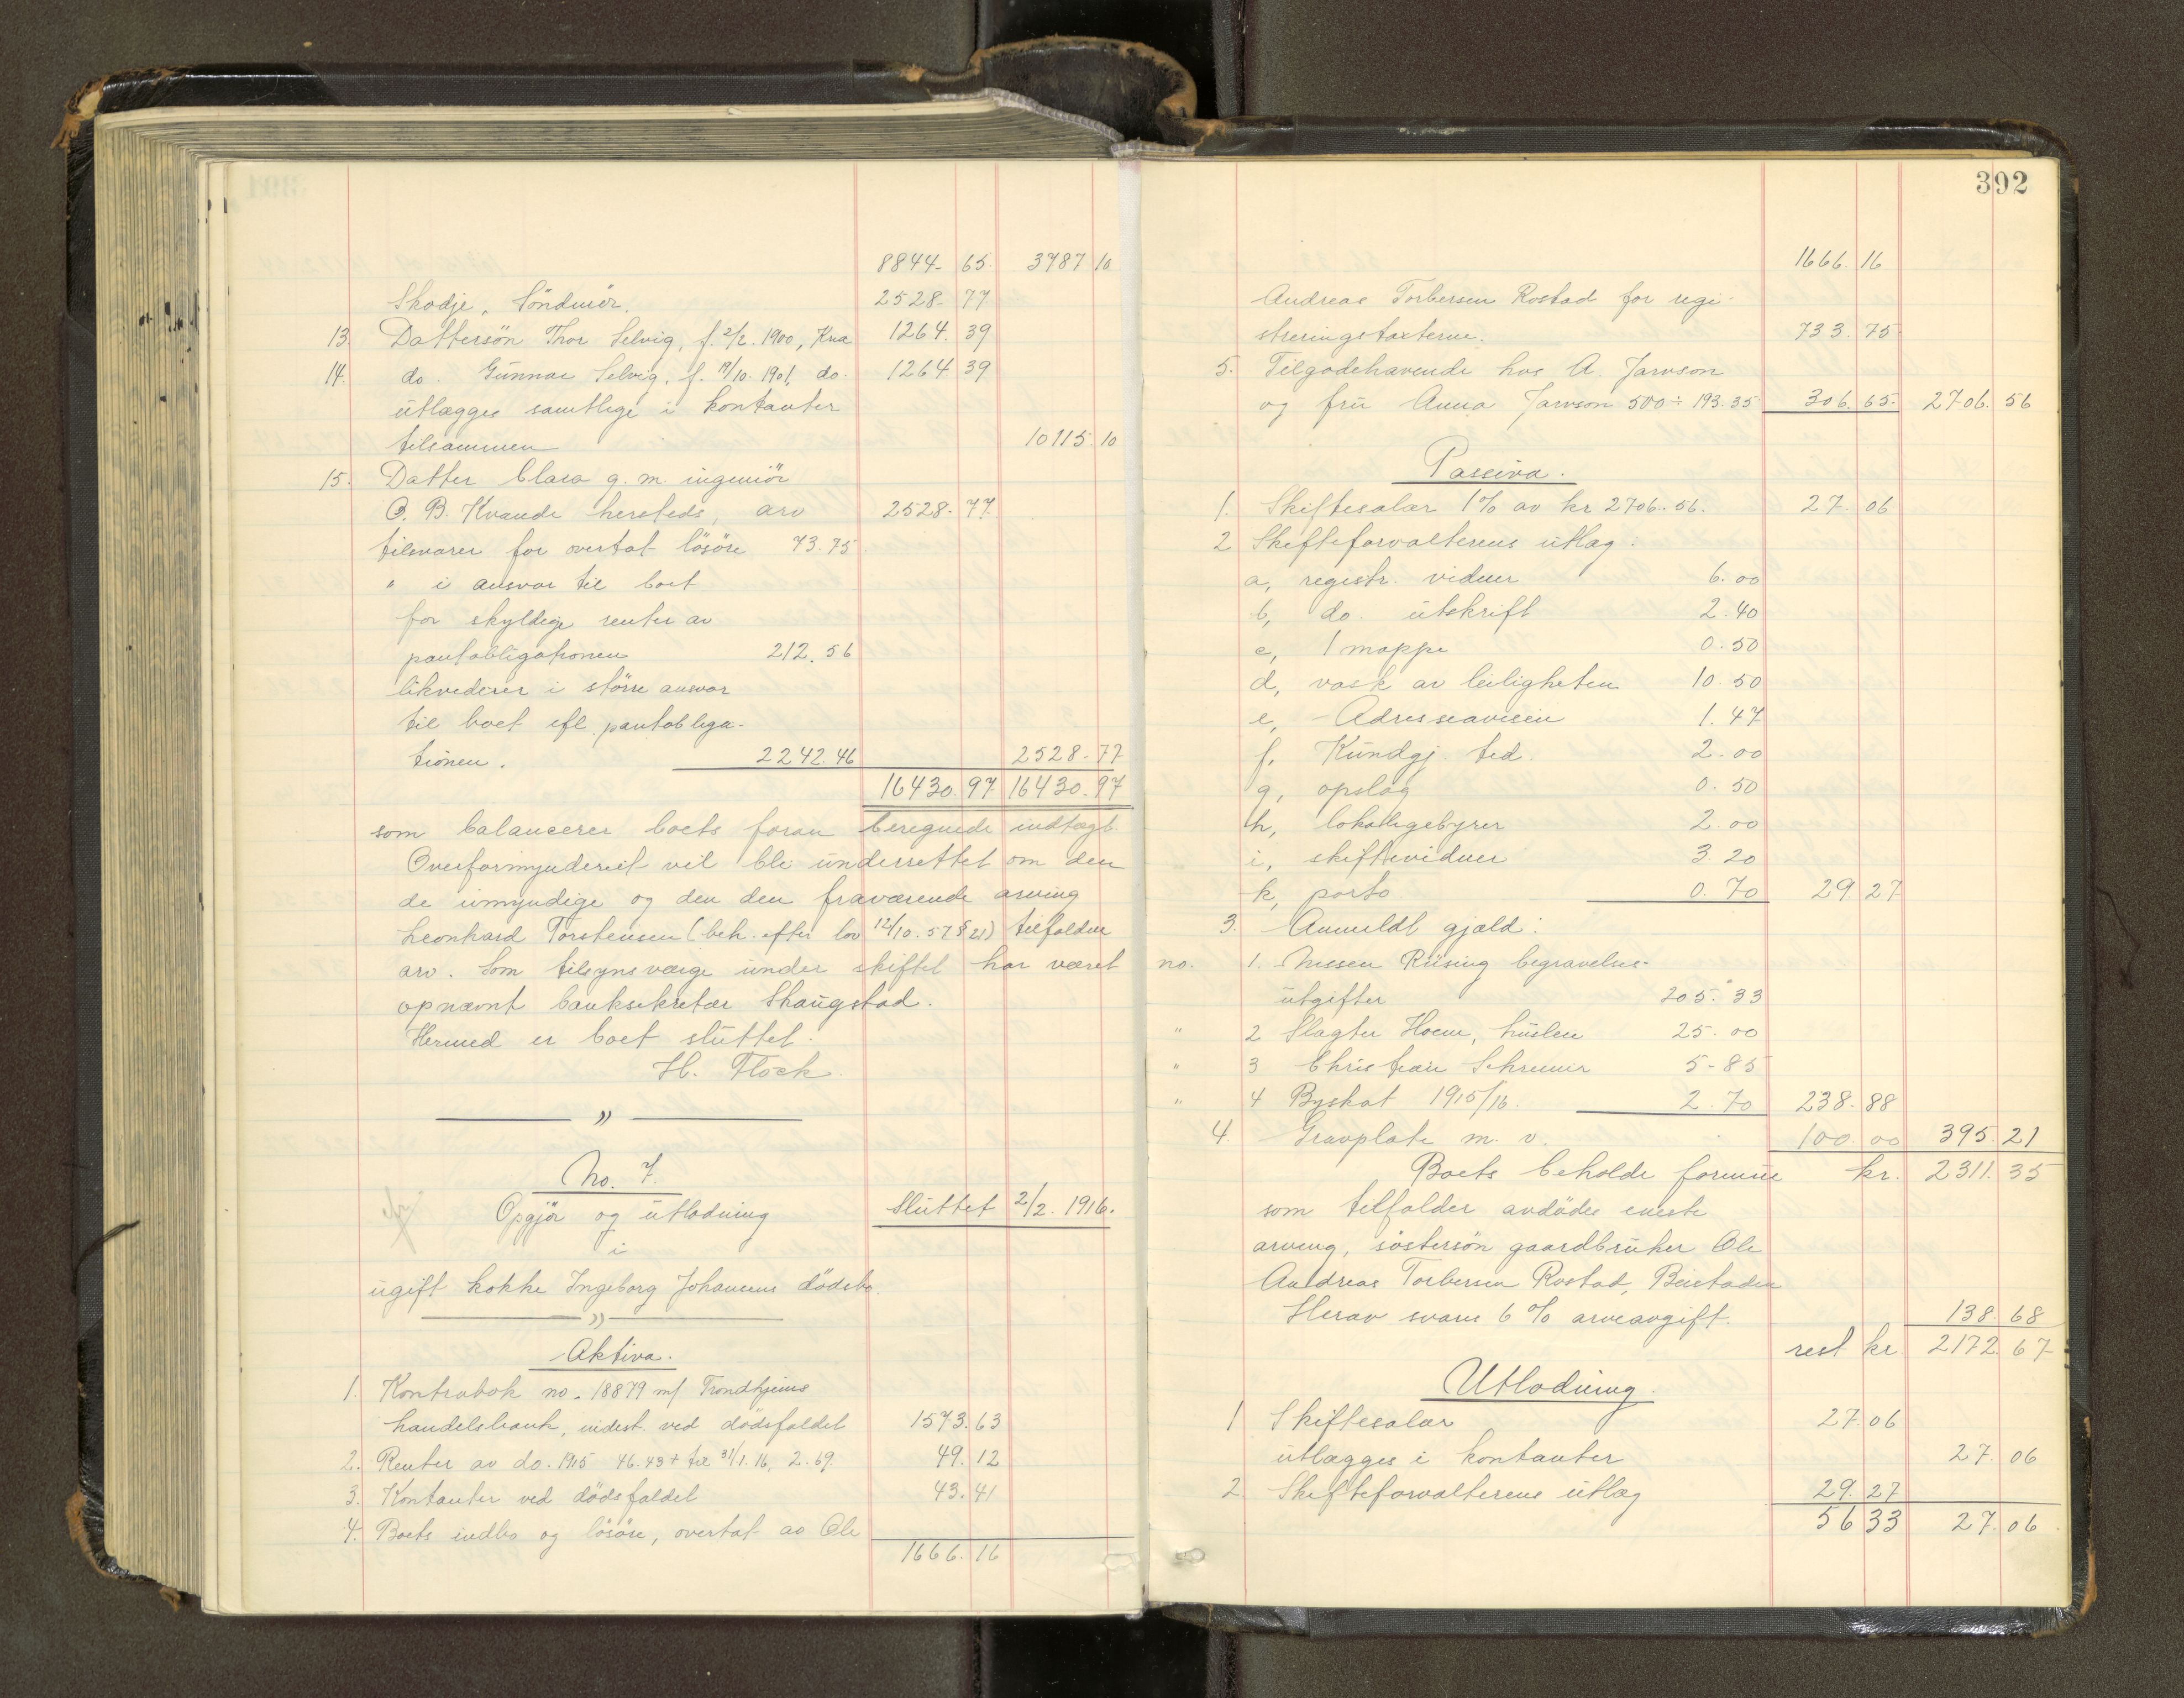 8844. 65. 3787 10
Skodje, Söndmör. 2528. 77
13. Dattersön Thor Selvig, f. 2/2. 1900, Kra 1264. 39
14. do. Gunnar Selvig, f. 19/10. 1901, do. 1264 39
utlægges samtlige i kontanter
tilsammen 10115. 10
15. Datter Clara g. m. ingeniör
O. B. Kvande hersteds, arv 2528. 77.
tilsvarer for overtat lösöre 73.75
" i ansvar til boet
for skyldige renter av
pantobligationen 212.56
likvederer i större ansvar
til boet efl. pantobliga-
tionen. 2242.46 2528. 77
16430. 97 16430. 97
som balancerer boets foran beregnede indtægt.
Overformynderiet vil bli underrettet om den
de umyndige og den den fraværende arving
Leonhard Torstensen (beh. efter lov 12/10. 57 § 21) tilfaldne
arv. Som tilsynsværge under skiftet har været
opnævnt banksekretær Skaugstad.
Hermed er boet sluttet.
H. Flock.
"
No. 7.
Opgjör og utlodning Sluttet 2/2. 1916.
i
ugift kokke Ingeborg Johansens dödsbo.
"
Aktiva.
1. Kontrabok no. 18879 m/ Trondhjems
handelsbank, indest. ved dödsfaldet 1573. 63
2. Renter av do. 1915 46.43 + til 31/1. 16, 2.69. 49. 12
3. Kontanter ved dödsfaldet 43. 41
4. Boets indbo og lösöre, overtat av Ole
1666. 16
392
1666. 16
Andreas Torbersen Rostad for regi-
streringstaxterne. 733. 75
5. Tilgodehavende hos A. Jarvson
og fru Anna Jarvson 500 ÷ 193.35 306. 65. 2706. 56
Passiva.
1. Skiftesalær 1% av kr 2706.56. 27. 06
2 Skifteforvalterens utlæg:
a, registr. vidner 6.00
b, do. utskrift 2.40
c, 1 mappe 0.50
d, vask av leiligheten 10.50
e, Adresseavisen 1.47
f, Kundgj. tid. 2.00
g, opslag 0.50
h, lokalgebyrer 2.00
i, skiftevidner 3.20
k, porto 0.70 29. 27
3. Anmeldt gjæld:
no. 1. Nissen Riising begravelses-
utgifter 205. 33
" 2 Slagter Hoem, husleie 25.00
" 3 Christian Schreiner 5-85
" 4 Byskat 1915/16. 2.70 238. 88
4. Gravplate m. v. 100. 00 395. 21
Boets beholde formue kr. 2311. 35
som tilfalder avdödes eneste
arving, söstersön gaardbruker Ole
Andreas Torbersen Rostad, Beistaden
Herav svares 6% arveavgift. 138. 68
rest kr 2172. 67
Utlodning.
1 Skiftesalær 27. 06
utlægges i kontanter 27. 06
2 Skifteforvalterens utlæg 29. 27
56 33 27. 06